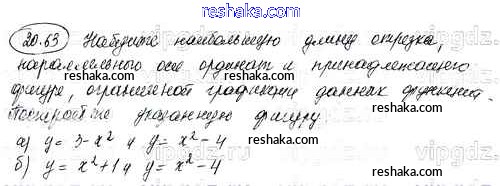 reshaka.ru
20.63 Найдите наибольшую длину отрезка,
параллельного оси ординат и принадлежащего
фигуре, ограниченной графиками данных функций.
Постройте указанную фигуру.
а) y = 3-x² и y = x²-4
б) y = x²+1 и y = x²-4
reshaka.ru